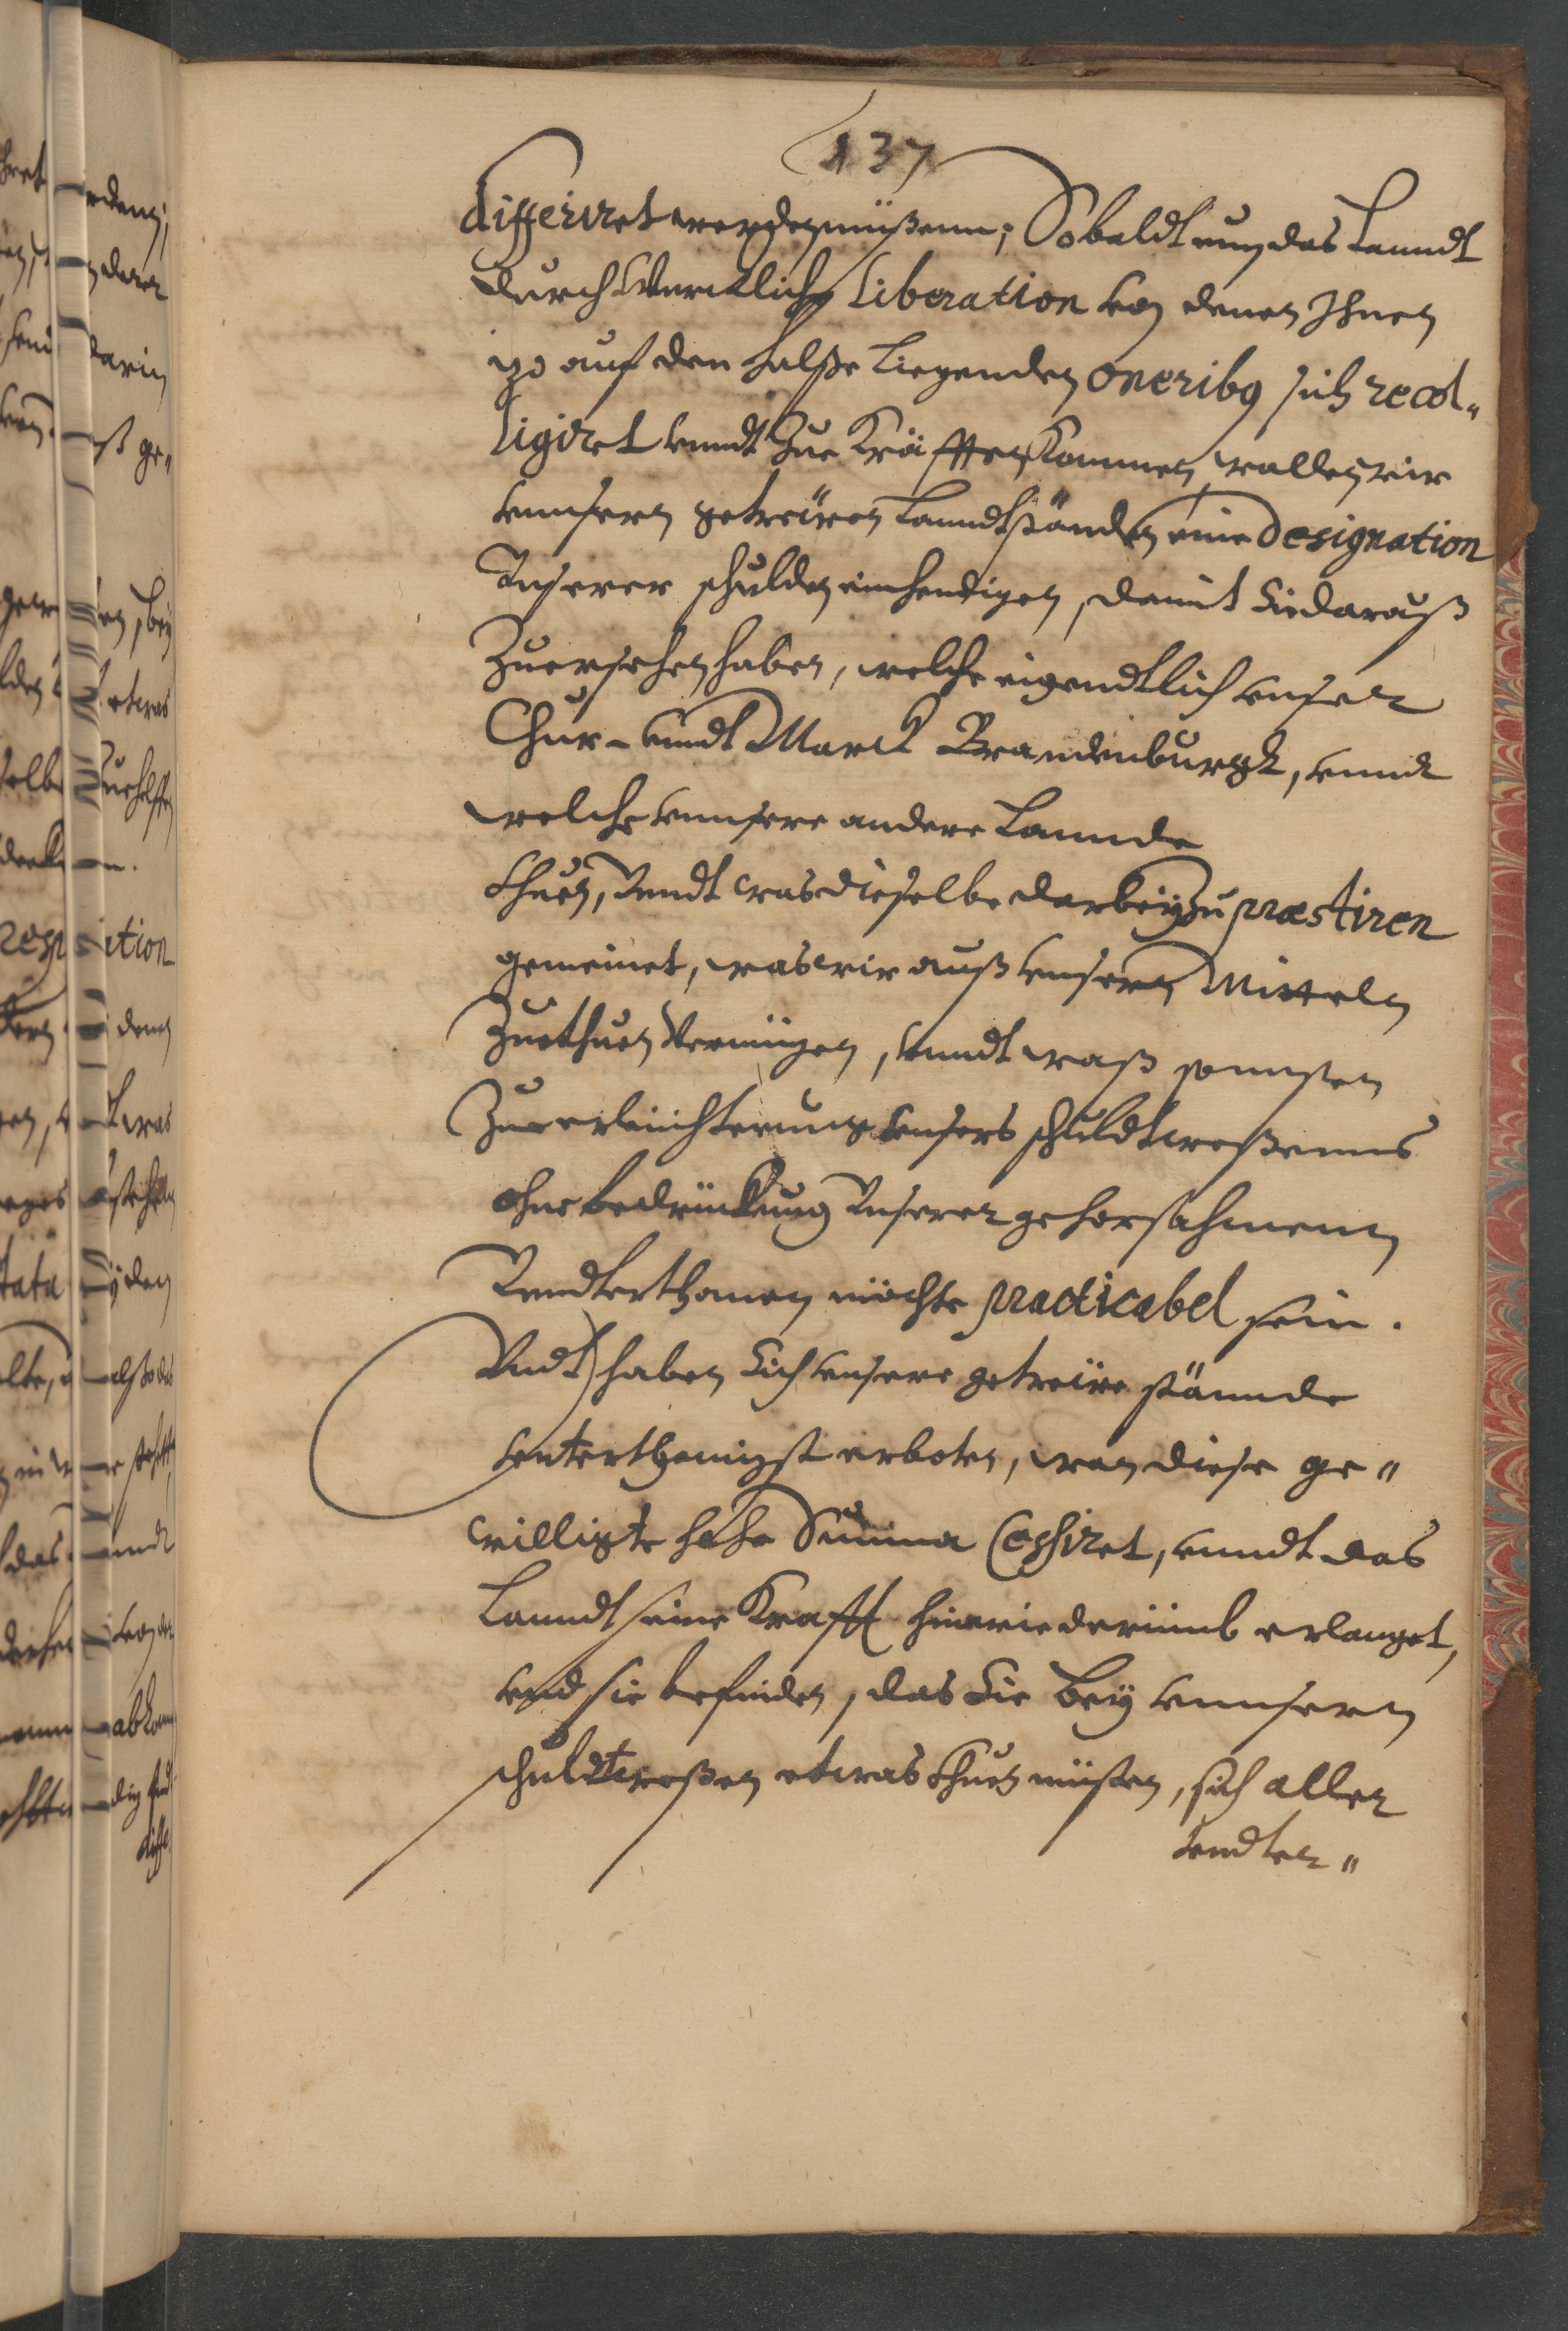 137
differiret werden müßenn; Sobaldt nun das Lanndt
durch Wercklicher Liberation von denen Ihnen
izo auf dem Halße Liegenden oneribus sich recol„
ligiret vnndt zue Kräfften kommen, wollen wir
vnnsern getreüen Lanndtständen eine Designation
Vnserer schulden einhendigen, damit Sie darauß
Zuersehen haben, welche eigendtlich vnser
Chur- vnndt Marck Brandenburgk, vnndt
welche vnnsere andere Lannde
thuen, Vnndt was dieselbe darbey zu præstiren
gemeinet, was wir auß vnsern Mitteln
Zuethuen Vermügen, vnndt waß sonnsten
Zue erleichterung vnsers schuldtweßenns
ohne bedrückung Vnserer gehorsahmenn
Vndterthanen möchte practicabel sein.
Vndt haben Sich vnsere getreüe stännde
vnterthenigst erboten, wan diese ge„
willigte hohe Summa Cessiret, vnndt das
Lanndt seine Krafft hinwiederümb erlanget,
vnd sie befinden, das Sie bey vnnserm
schuldtweßen etwas thuen müsten, sich aller
vndter„